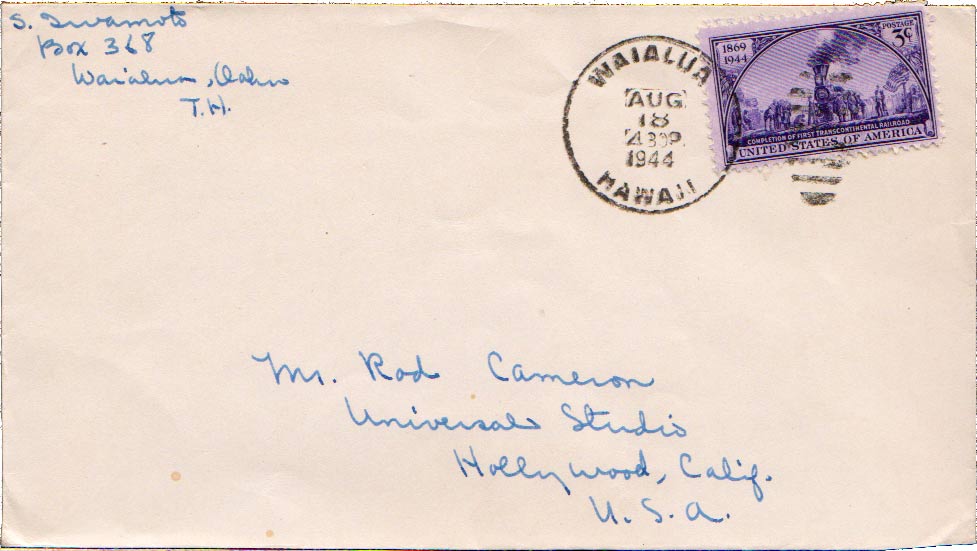 S. Iwamoto
Box 368
Waialua, Oahu
T.H.
WAIALUA
AUG
18
4 30P
1944
HAWAII
1869
1944
POSTAGE
3¢
COMPLETION OF FIRST TRANSCONTINENTAL RAILROAD
UNITED STATES OF AMERICA
Mr. Rod Cameron
Universal Studio
Hollywood, Calif.
U. S. A.